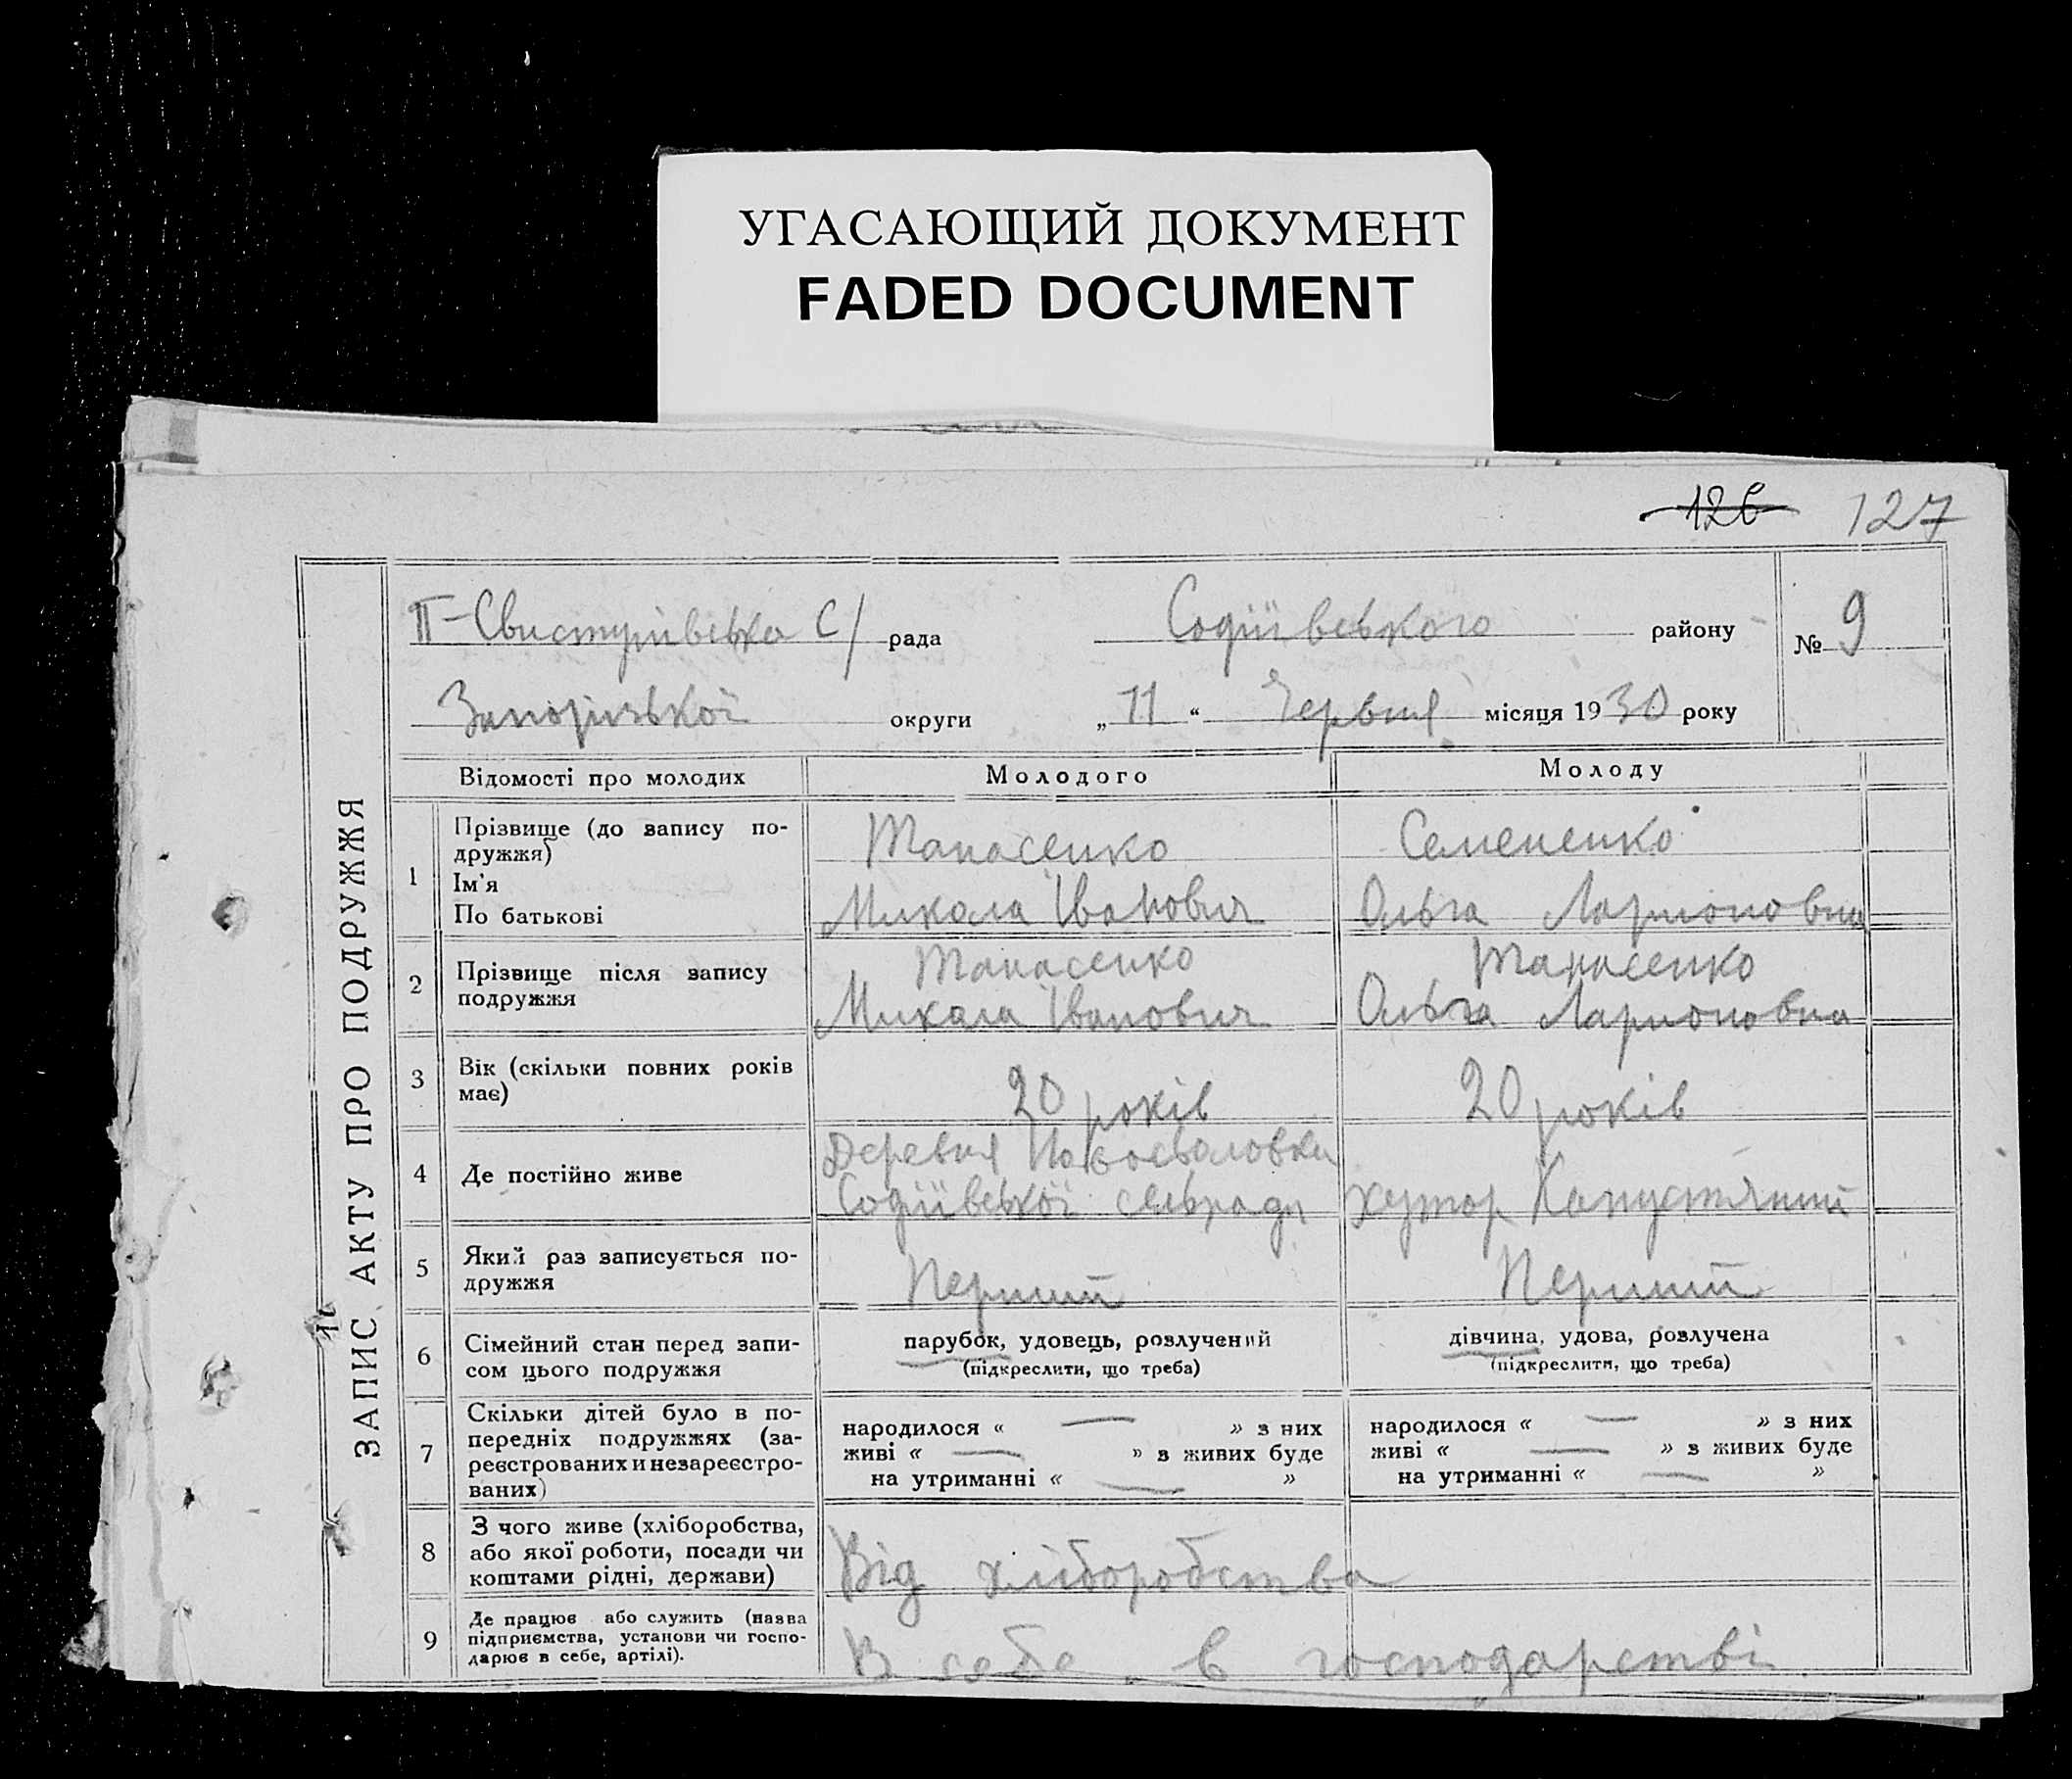 УГАСАЮЩИЙ ДОКУМЕНТ
FADED DOCUMENT
126 127
ЗАПИС АКТУ ПРО ПОДРУЖЖЯ
ІІ-Свистунівська С/ рада Софіївського району № 9
Запорізької округи „11“ Червня місяця 1930 року
Відомості про молодих Молодого Молоду
1 Прізвище (до запису по-
дружжя) Танасенко Семененко
Ім'я
По батькові Микола Іванович Ольга Ларионовна
2 Прізвище після запису
подружжя Танасенко Танасенко
Микола Іванович Ольга Ларионовна
3 Вік (скільки повних років
має) 20 років 20 років
4 Де постійно живе Деревня
Софіївської сельради хутор Капустяний
5 Який раз записується по-
дружжя Перший Перший
6 Сімейний стан перед запи-
сом цього подружжя
парубок, удовець, розлучений
(підкреслити, що треба)
дівчина, удова, розлучена
(підкреслити, що треба)
7 Скільки дітей було в по-
передніх подружжях (за-
реєстрованих и незареєстро-
ваних)
народилося « — » з них
живі « — » з живих буде
на утриманні « — »
народилося « — » з них
живі « — » з живих буде
на утриманні « — »
8 З чого живе (хліборобства,
або якої роботи, посади чи
коштами рідні, держави) Від хліборобства
9 Де працює або служить (назва
підприємства, установи чи госпо-
дарює в себе, артілі). В себе в господарстві